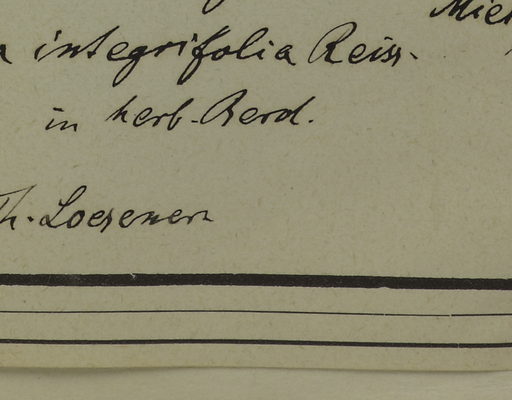 Miers
a integrifolia Reiss.
in herb. Berol.
Th. Loesener